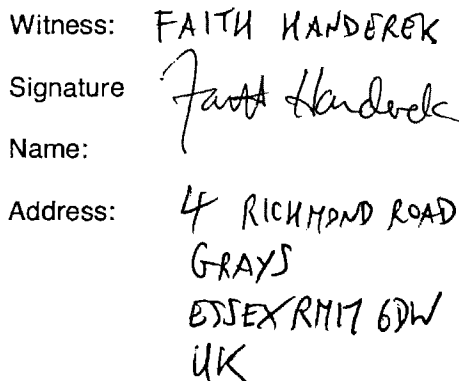 Witness: FAITH HANDEREK
Signature Faith Handerek
Name:
Address: 4 RICHMOND ROAD
GRAYS
ESSEX RM17 6DW
UK